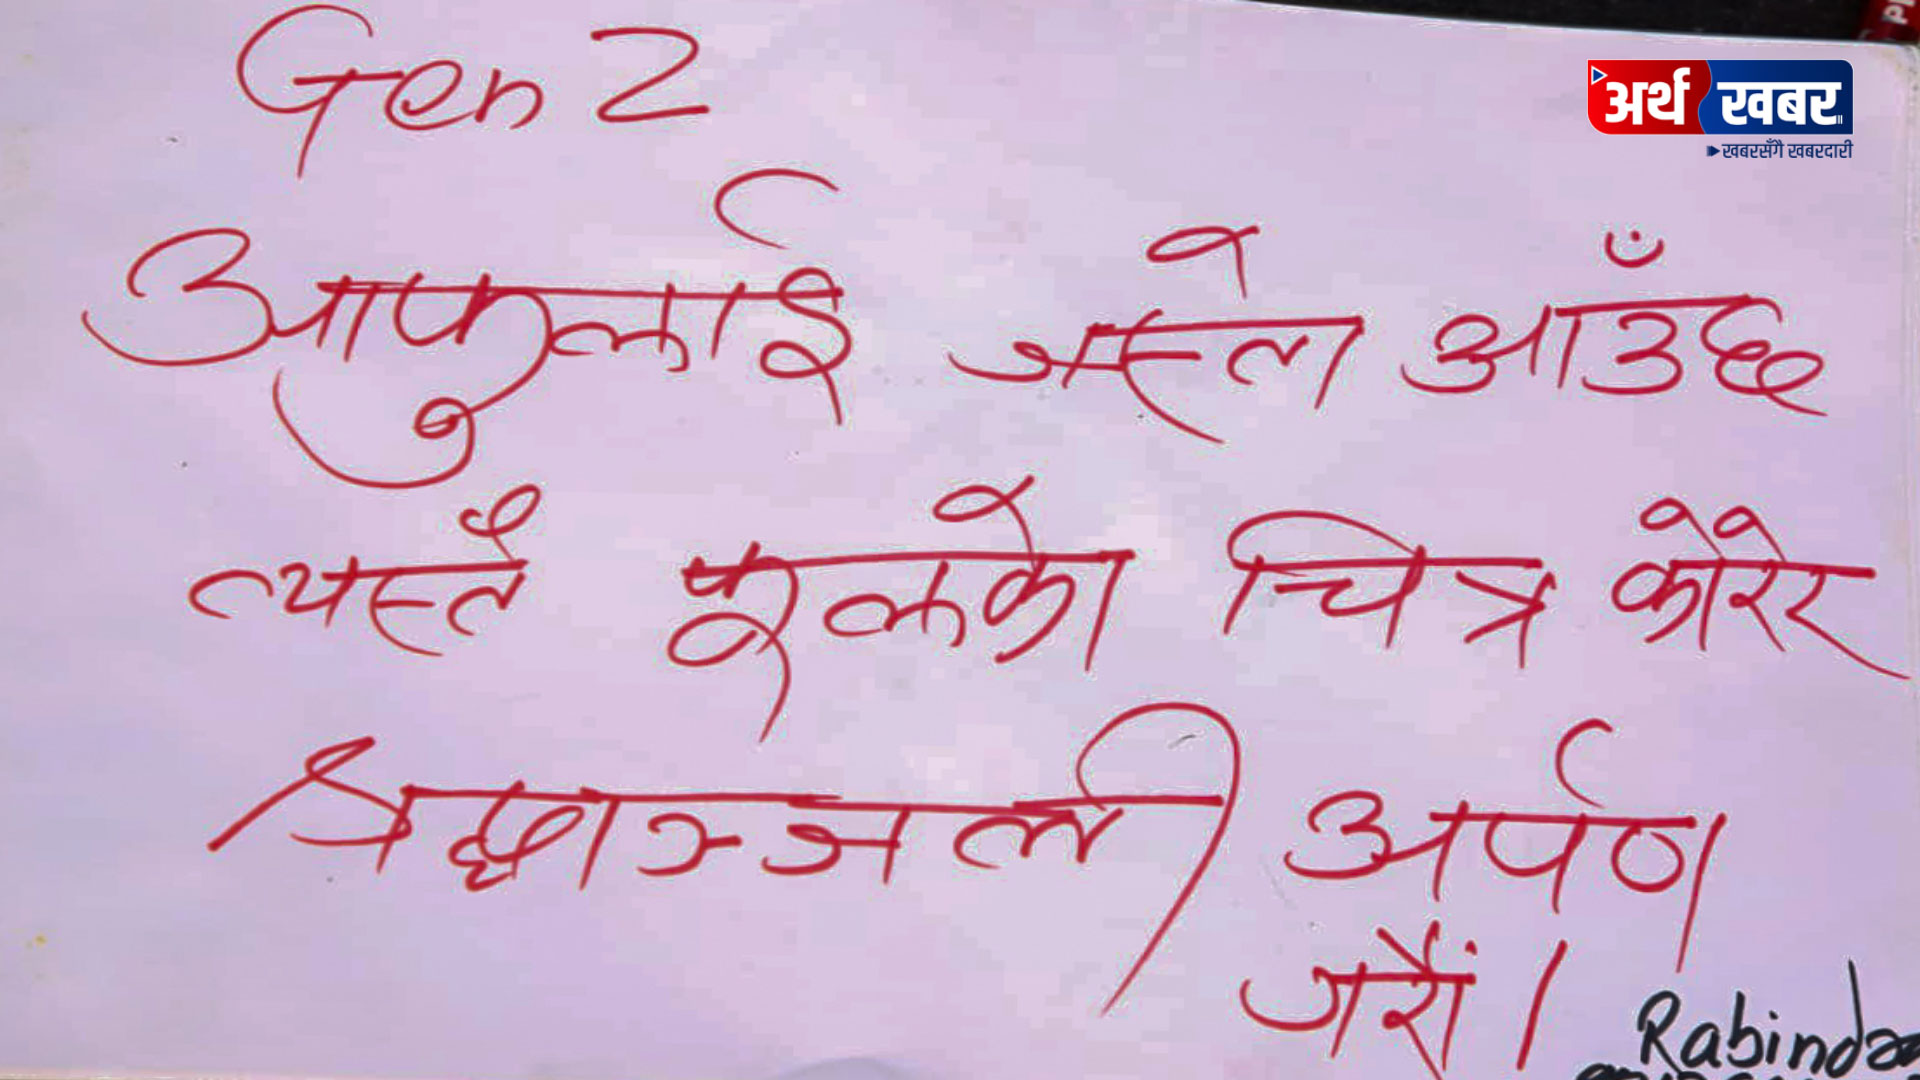 Gen Z
अर्थ खबर
खबरसँगै खबरदारी
आफुलाई जस्तो आउँछ
त्यस्तै फूलको चित्र कोरेर
श्रद्धाञ्जली अर्पण
गरौं ।